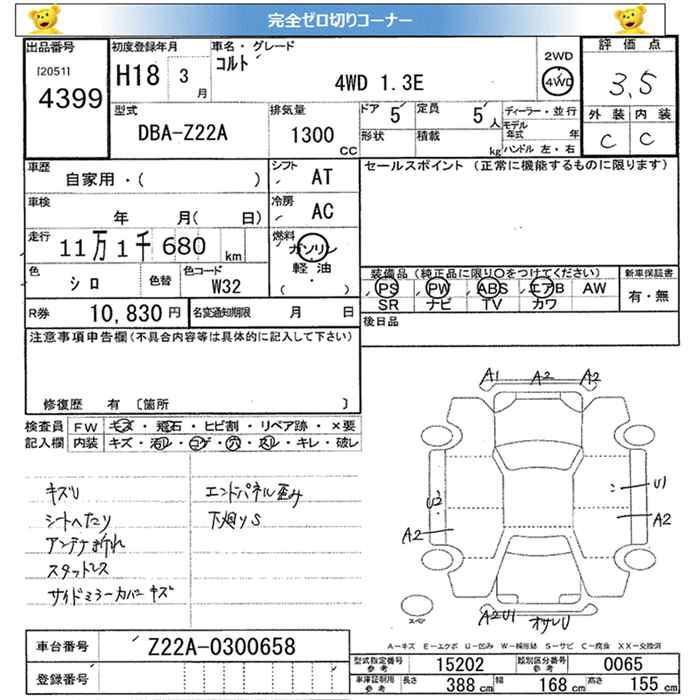 完全ゼロ切りコーナー
出品番号
[2051]
4399
初度登録年月
H18 3月
車名・グレード
コルト
4WD 1.3E
2WD
4WD
評価点
3.5
外装 内装
C C
型式
DBA-Z22A
排気量
1300 CC
ドア 5
定員 5人
形状
積載 kg
ディーラー・並行
モデル年式 年
ハンドル 左・右
車歴
自家用・( )
シフト AT
セールスポイント (正常に機能するものに限ります)
車検
年 月( 日)
冷房 AC
走行 11万1千680 km
燃料 ガソリン
軽油
( )
色 シロ
色替
色コード W32
装備品(純正品に限り○をつけてください)
新車保証書
PS PW ABS エアB AW
有・無
SR ナビ TV カワ
R券 10,830円
名変通知期限 月 日
後日品
注意事項申告欄(不具合内容等は具体的に記入して下さい)
修復歴 有 [箇所 ]
検査員記入欄
FW キズ・飛石・ヒビ割・リペア跡・×要
内装 キズ・汚レ・コゲ・穴・スレ・キレ・破レ
キズU
シートへたり
アンテナ折れ
スタットレス
サイドミラーカバーキズ
エンドパネル歪み
下廻りS
A1 A2 A2
U2
A2
U1
A2
スペア
A2U1
オサレU
A-キズ E-エクボ U-凹み W-補修跡 S-サビ C-腐食 XX-交換済
車台番号 Z22A-0300658
登録番号
型式指定番号参考 15202
類別区分番号参考 0065
車庫証明用参考 長さ 388 cm 幅 168 cm 高さ 155 cm